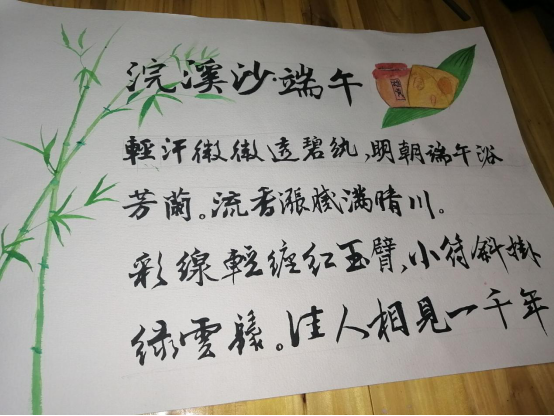 浣溪沙·端午
輕汗微微透碧纨,明朝端午浴
芳蘭。流香漲膩滿晴川。
彩線輕缠红玉臂,小符斜掛
绿雲鬟。佳人相見一千年